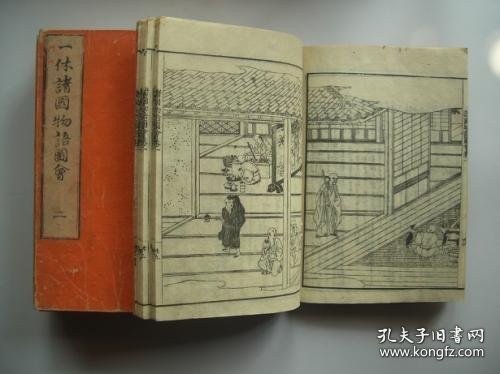 一休諸國物語圖會
二
孔夫子旧書网
www.kongfz.com